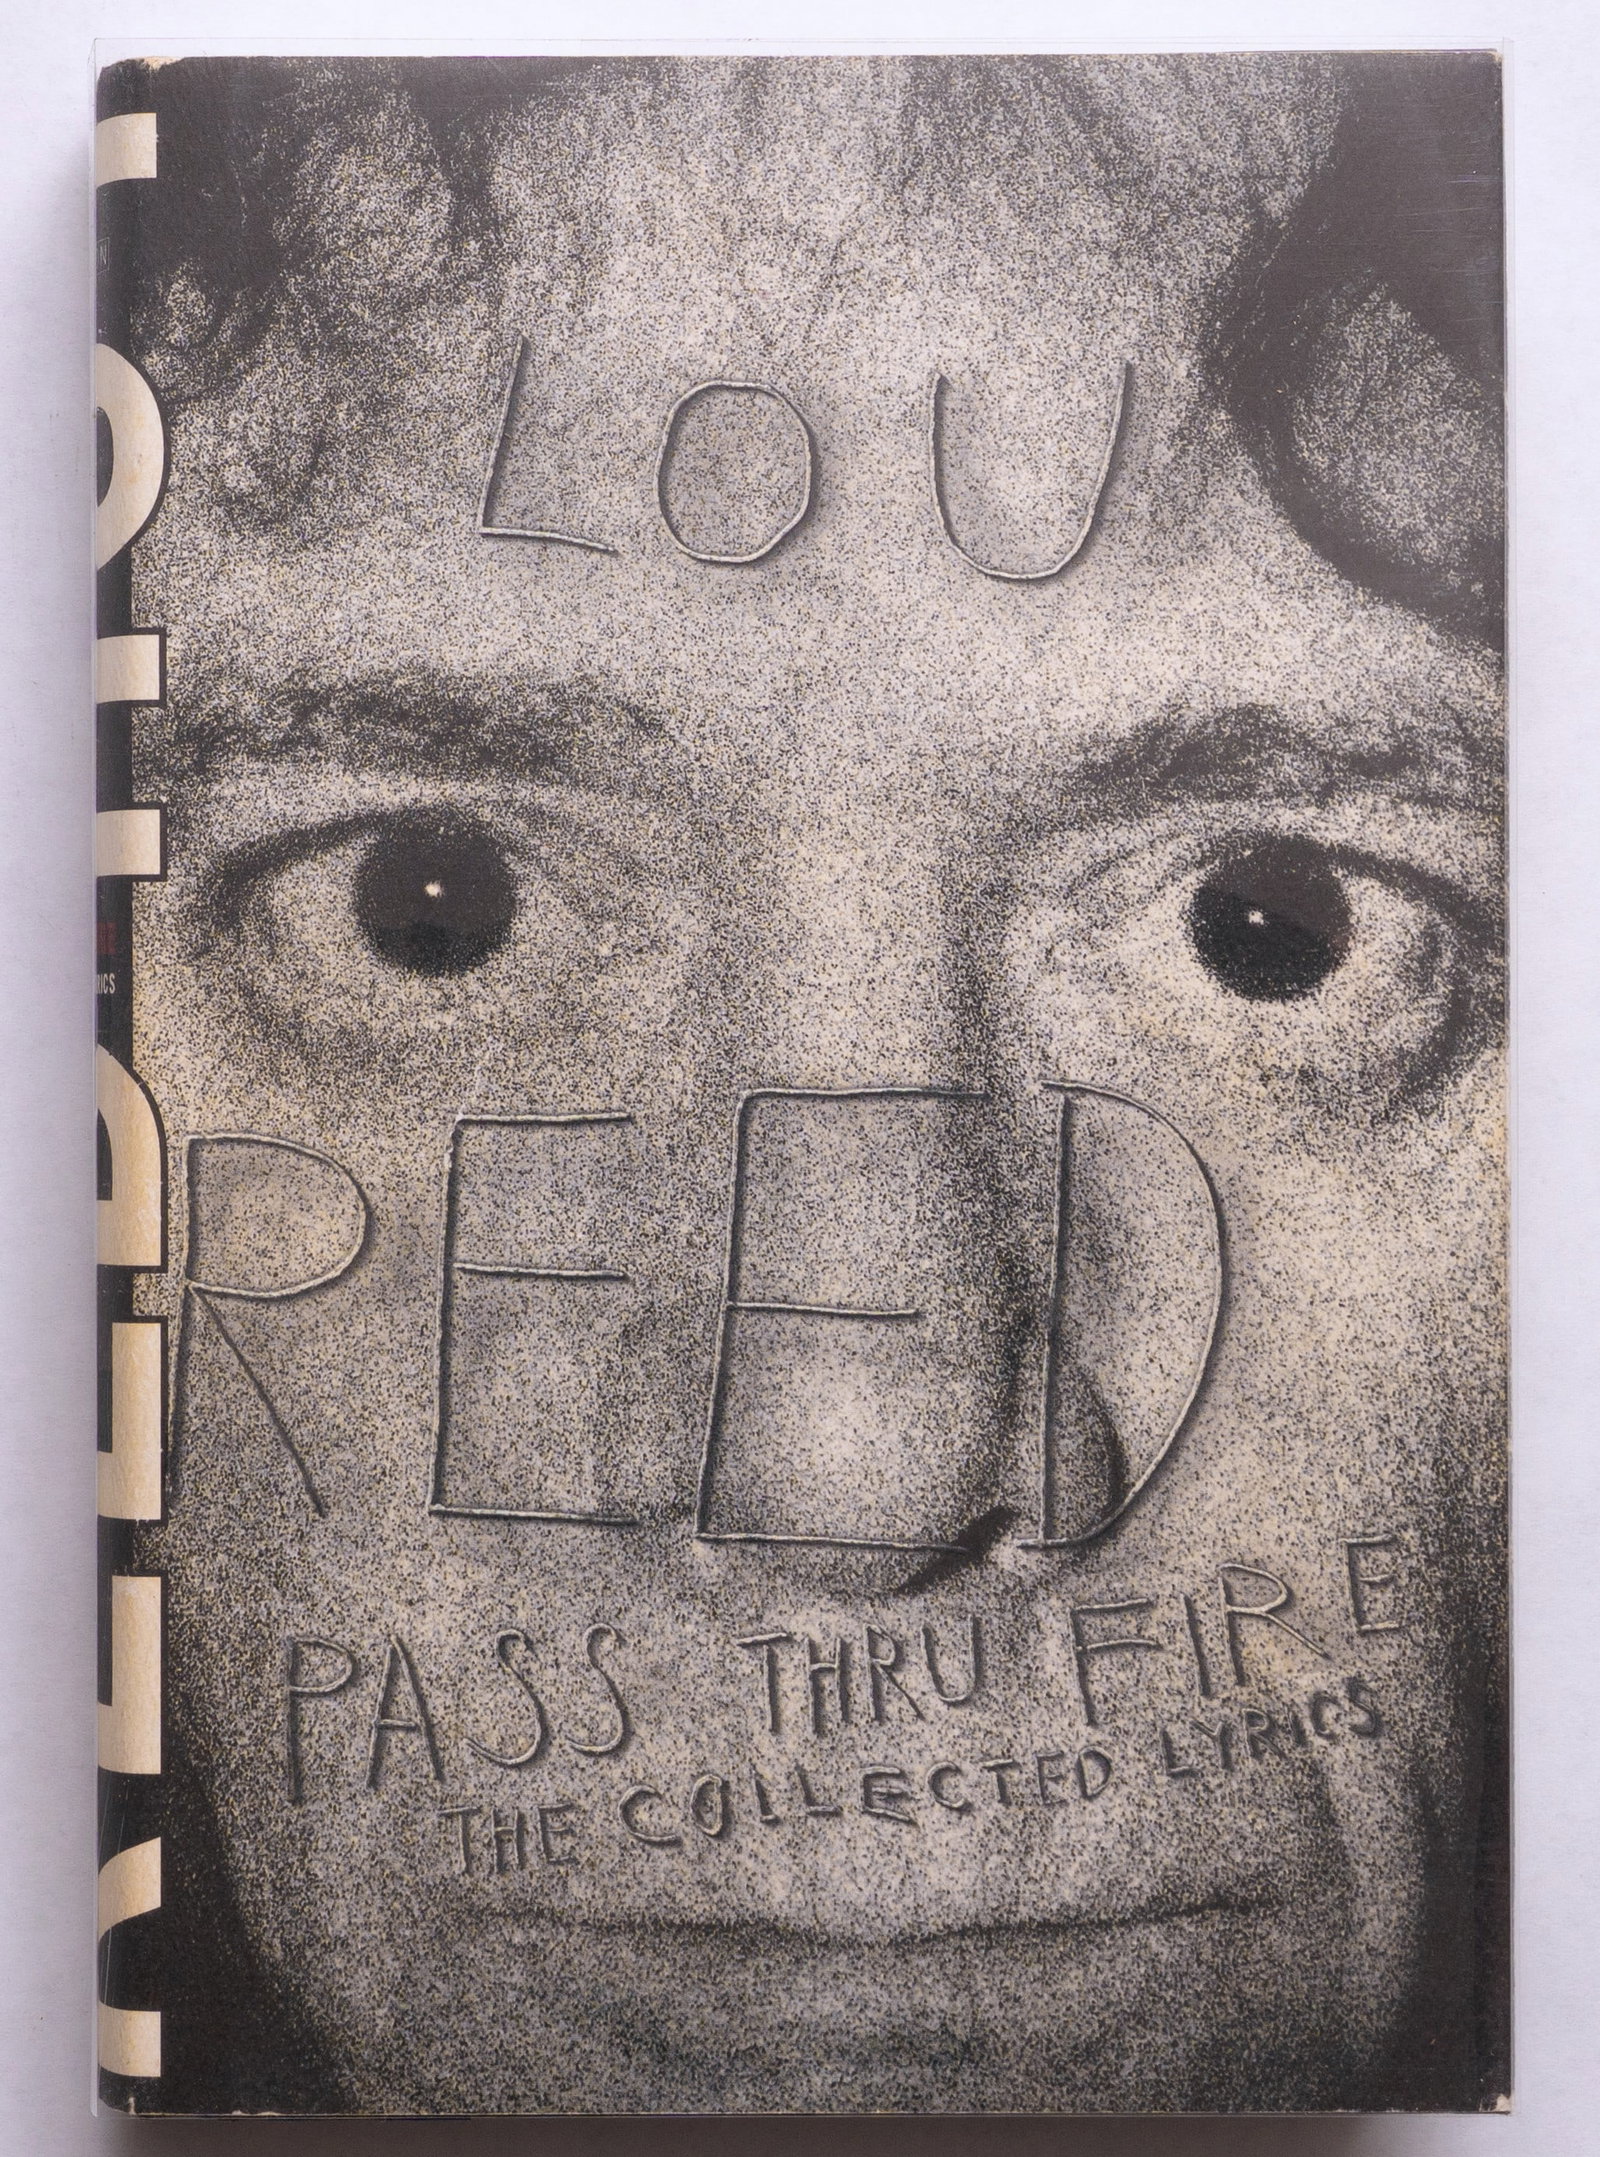 LOU
REED
PASS THRU FIRE
THE COLLECTED LYRICS